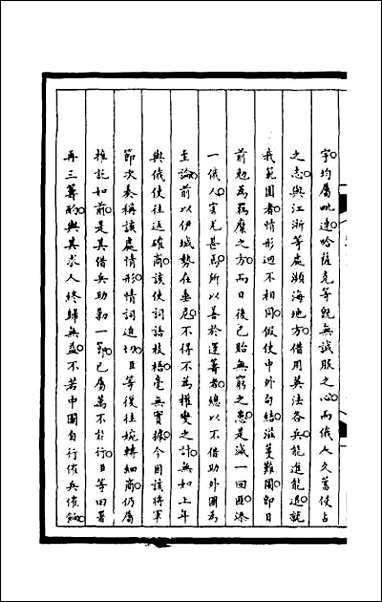 字均屬毗連哈薩克等既無誠服之心而俄人久蓄侵占
之志與江浙等處瀕海地方借用英法各兵能進能退就
我範圍者情形迥不相同假使中外勾結滋蔓難圖即目
前勉為羈縻之方而日後已貽無窮之患是減一回匪添
一俄人害尤甚焉所以善於運籌者總以不借助外國為
至論前以伊城勢在垂危不得不為權變之計無如上年
與俄使往返確商該使詞語枝梧毫無實據今因該將軍
節次奏稱該處情形情詞迫切臣等復往婉轉細商仍屬
推託如前是其借兵助勦一節已屬萬不於行臣等再
再三籌酌與其求人終歸無益不若中國自行催兵催餉